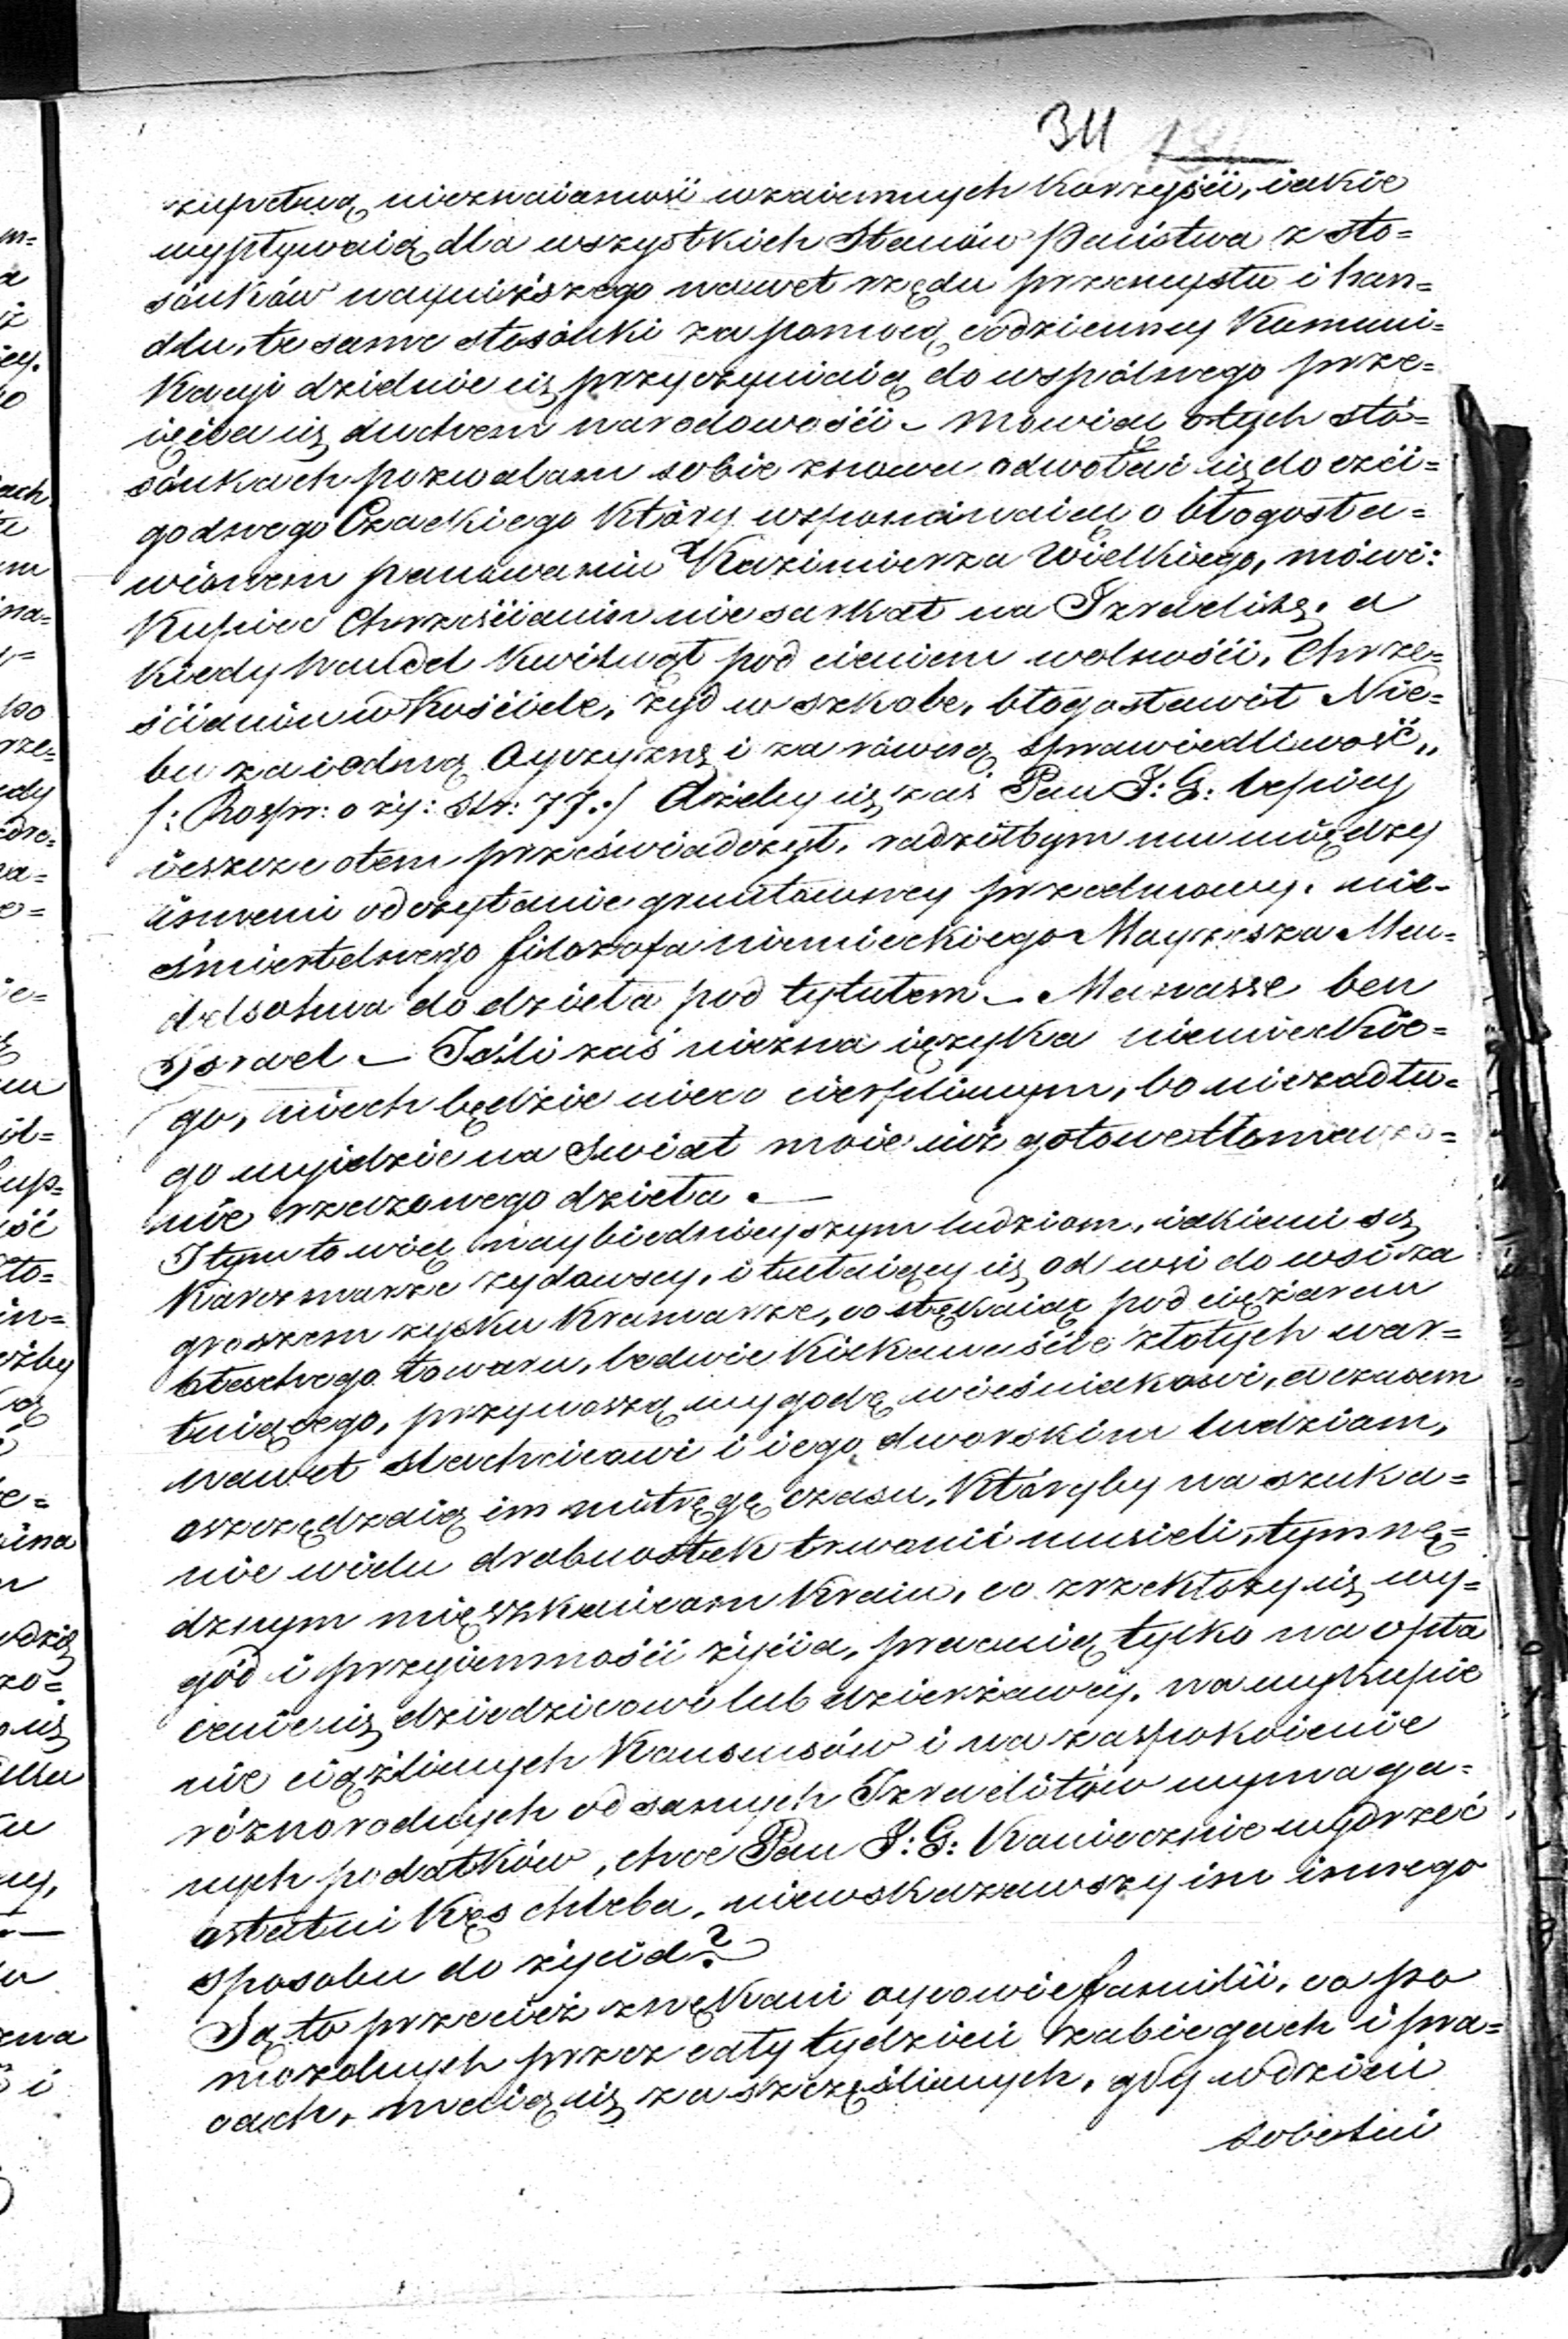 311
zupełną nieznaiomość wzaiemnych korzyści, iakie
wypływaią dla wszystkich Stanów Państwa z sto=
sónków nayniższego nawet rzędu przemysłu i han=
dlu, te same stosónki za pomocą codzienney Kamuni=
kacyi dzielnie się przyczyniaią do wspólnego prze=
ięcia się duchem narodowości – Mówiąc o tych stó=
sónkach pozwalam sobie znowu odwołać się do czci=
godnego Czackiego który wspominaiąc o błogosła=
wionem panowaniu Kazimierza Wielkiego, mówi:
Kupiec Chrześcianin nie sarkał na Izraelitę, a
kiedy handel kwitnął pod cieniem wolności, Chrze=
ścianin w Kościele, żyd w szkole, błogosławił Nie=
bu za iedną Oyczyznę i za równą sprawiedliwość„
/: Rospr: o ży: str: 77:/ Ażeby się zaś Pan J: G: lepiey
ieszcze o tem przeświadczył, radziłbym mu między
innemi odczytanie gruntowney przedmowy, nie=
śmiertelnego filozofa niemieckiego Mayżesza Men=
delsohna do dzieła pod tytułem – Manasse ben
Israel – Jeśli zaś niezna ięzyka niemieckie=
go, niech będzie nieco cierpliwym, bo niezadłu=
go wyidzie na świat moie iuż gotowe tłomacze=
nie rzeczonego dzieła. –
I tym to więc naybiednieyszym ludziom, iakiemi są
Karczmarze żydowscy, i tułaiący się od wsi do wsi za
groszem zysku Kramarze, co stękaiąc pod ciężarem
błachego towaru, ledwie kilkanaście złotych war=
tuiącego, przynoszą wygodę wieśniakowi, a czasem
nawet slachcicowi i iego dworskim ludziom,
oszczędzaią im mitręgę czasu, któryby na szuka=
nie wielu drobnostek trwonić musieli, tym nę=
dznym mięszkańcom Kraiu, co zrzekłszy się wy=
gód i przyiemności życia, pracuią tylko na opła
cenie się dziedzicowi lub dzierżawcy, na wykupie
nie ciążliwych Konsensów i na zaspokoienie
różnorodnych od samych Izraelitów wymaga=
nych podatków, chce Pan J: G: koniecznie wydrzeć
ostatni kęs chleba, niewskazawszy im innego
sposobu do życia?
Są to przecież znękani oycowie familii, co po
mozolnych przez cały tydzień zabiegach i pra=
cach, maią się za szczęśliwych, gdy w dzień
sobotni